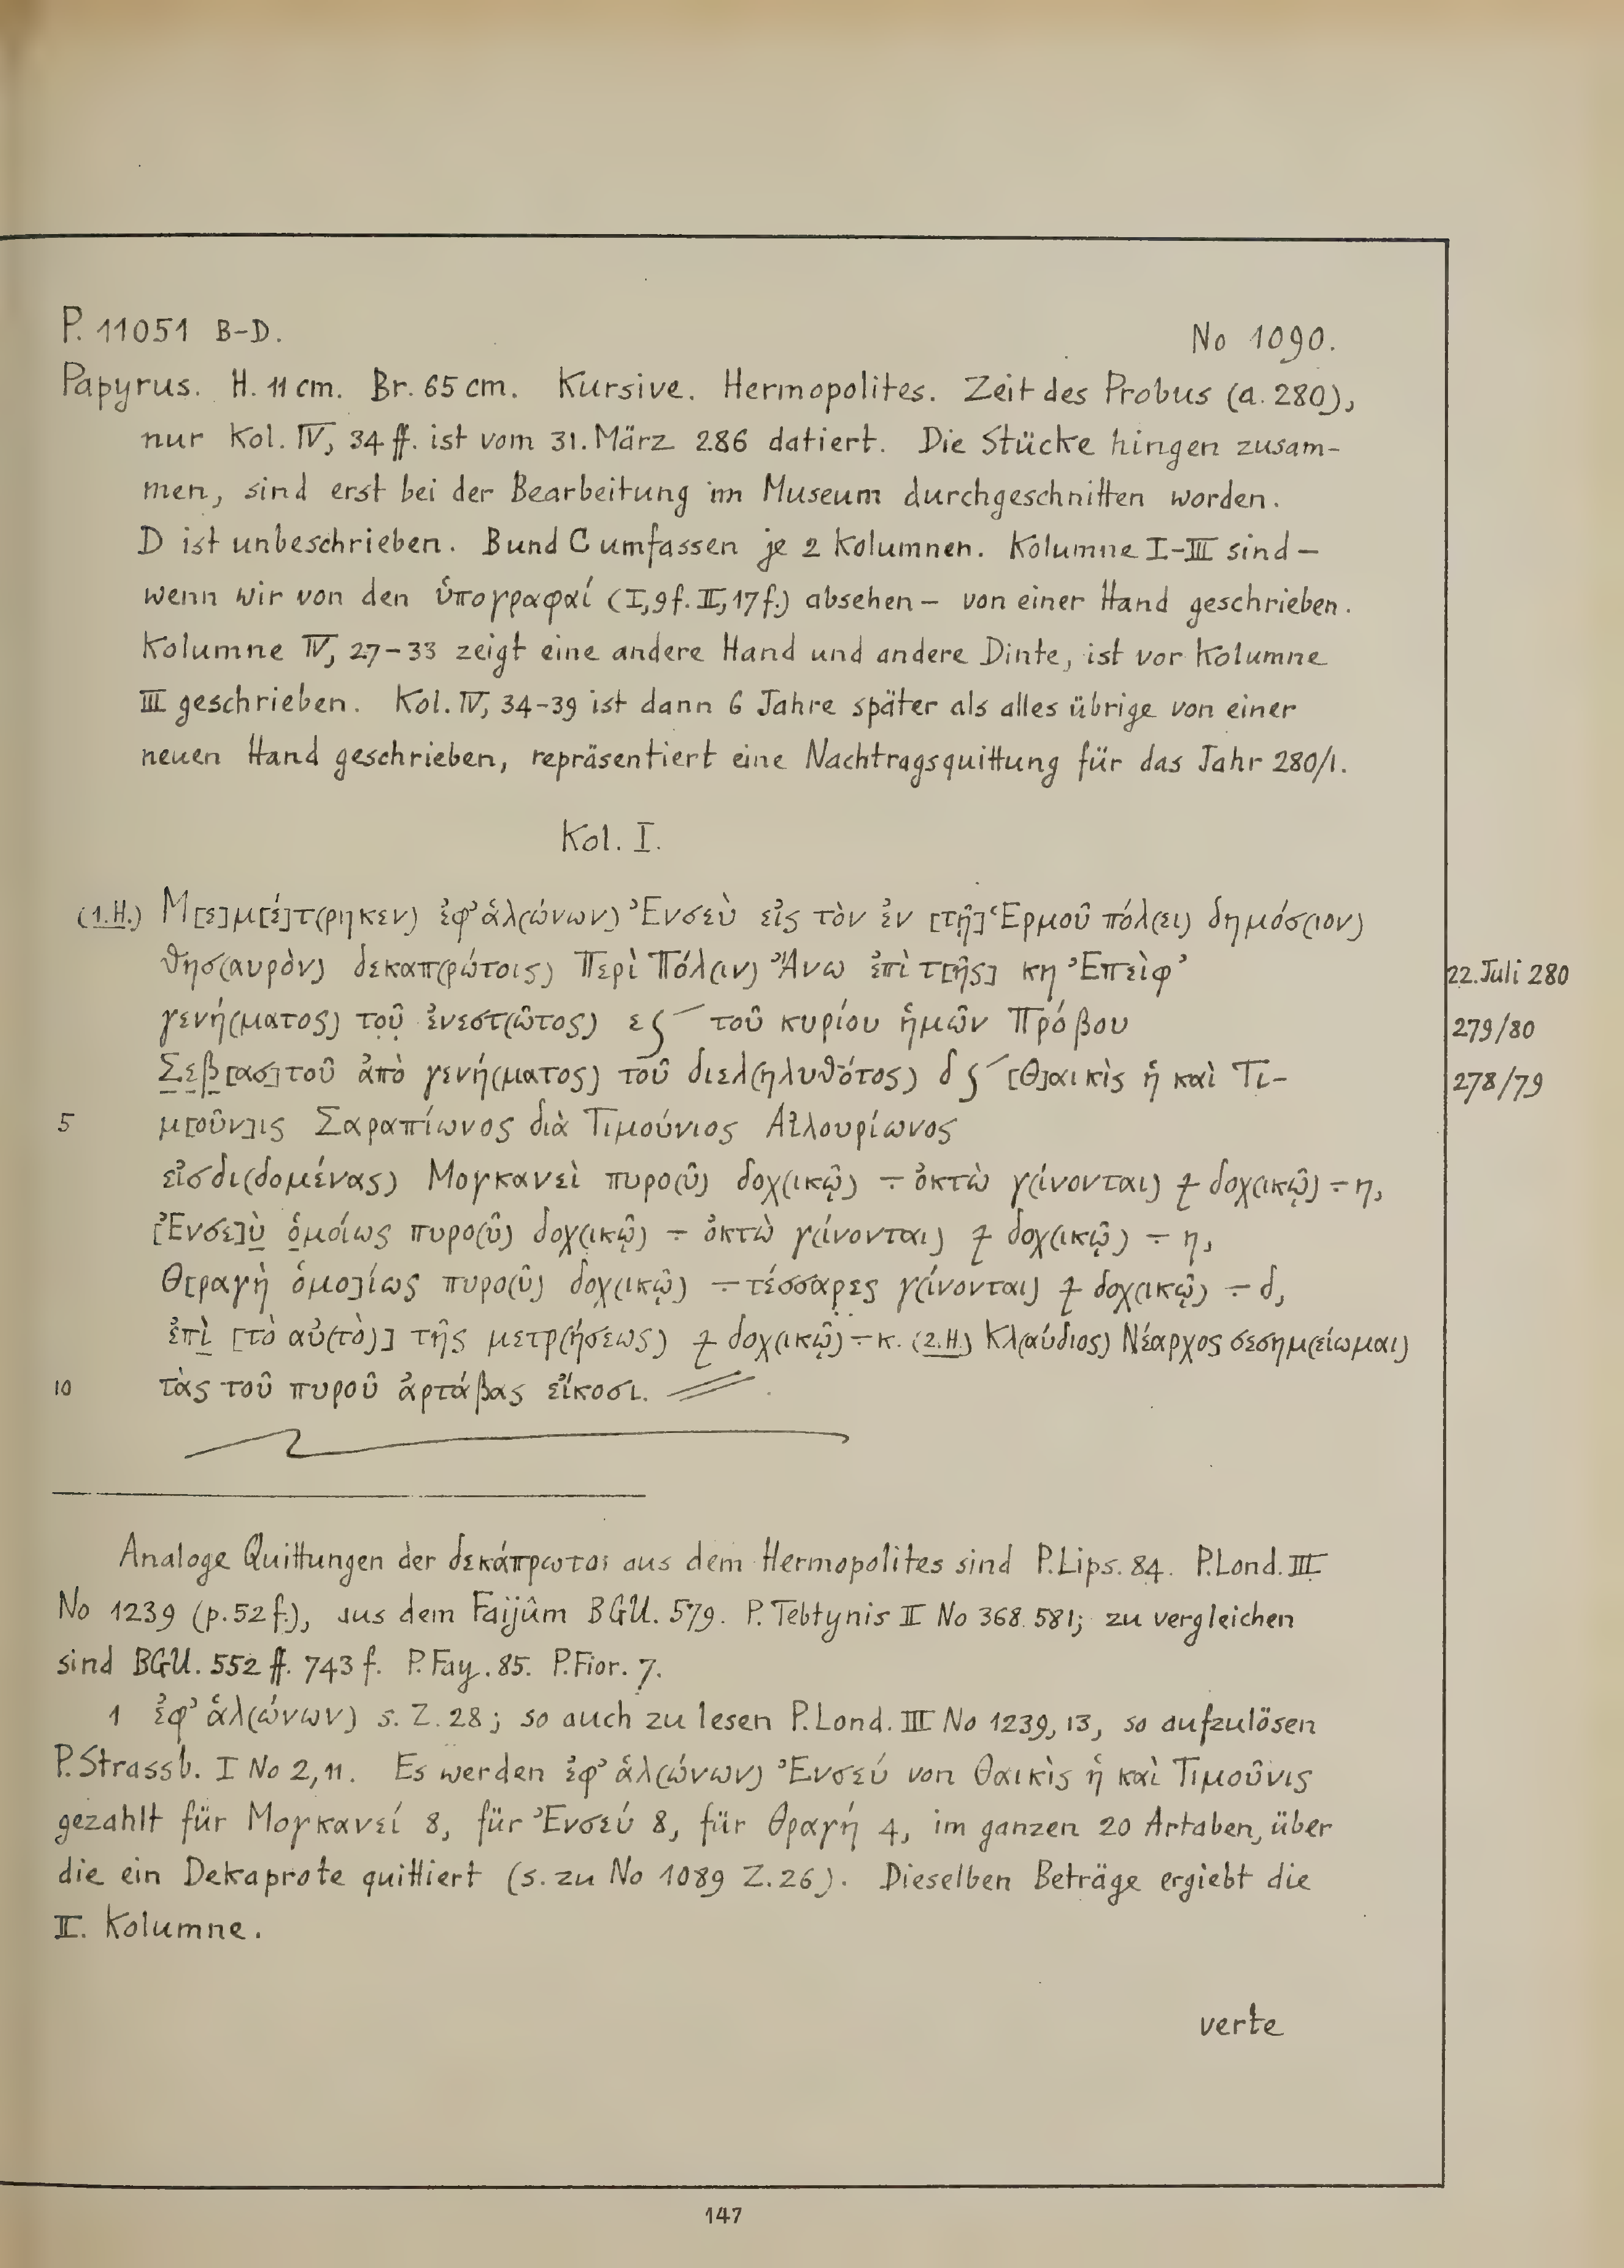 P. 11051 B-D.
No 1090.
Papyrus. H. 11 cm. Br. 65 cm. Kursive. Hermopolites. Zeit des Probus (a. 280),
nur Kol. IV, 34 ff. ist vom 31. März 286 datiert. Die Stücke hingen zusam-
men, sind erst bei der Bearbeitung im Museum durchgeschnitten worden.
D ist unbeschrieben. B und C umfassen je 2 Kolumnen. Kolumne I-III sind –
wenn wir von den ὑπογραφαί (I,9f. II,17f.) absehen – von einer Hand geschrieben.
Kolumne IV, 27-33 zeigt eine andere Hand und andere Dinte, ist vor Kolumne
III geschrieben. Kol. IV, 34-39 ist dann 6 Jahre später als alles übrige von einer
neuen Hand geschrieben, repräsentiert eine Nachtragsquittung für das Jahr 280/1.
Kol. I.
(1.H.) Μ[ε]μ[έ]τ(ρηκεν) ἐφ' ἁλ(ώνων) Ἐνσεὺ εἰς τὸν ἐν [τῇ] Ἑρμοῦ πόλ(ει) δημόσ(ιον)
θησ(αυρὸν) δεκαπ(ρώτοις) Περὶ Πόλ(ιν) Ἄνω ἐπὶ τ[ῆς] κη Ἐπεὶφ'
22. Juli 280
γενή(ματος) τοῦ ἐνεστ(ῶτος) ε ʃ τοῦ κυρίου ἡμῶν Πρόβου
279/80
Σεβ[ασ]τοῦ ἀπὸ γενή(ματος) τοῦ διελ(ηλυθότος) δ ʃ [Θ]αικὶς ἡ καὶ Τι-
278/79
5 μ[οῦν]ις Σαραπίωνος διὰ Τιμούνιος Αἰλουρίωνος
εἰσδι(δομένας) Μογκανεὶ πυρο(ῦ) δοχ(ικῷ) ÷ ὀκτὼ γ(ίνονται) ⳨ δοχ(ικῷ) ÷ η,
[Ἐνσε]ὺ ὁμοίως πυρο(ῦ) δοχ(ικῷ) ÷ ὀκτὼ γ(ίνονται) ⳨ δοχ(ικῷ) ÷ η,
Θ[ραγὴ ὁμο]ίως πυρο(ῦ) δοχ(ικῷ) ÷ τέσσαρες γ(ίνονται) ⳨ δοχ(ικῷ) ÷ δ,
ἐπὶ [τὸ αὐ(τὸ)] τῆς μετρ(ήσεως) ⳨ δοχ(ικῷ) ÷ κ. (2.H.) Κλ(αύδιος) Νέαρχος σεσημ(είωμαι)
10 τὰς τοῦ πυροῦ ἀρτάβας εἴκοσι.
Analoge Quittungen der δεκάπρωτοι aus dem Hermopolites sind P. Lips. 84. P. Lond. III
No 1239 (p. 52 f.), aus dem Faijûm BGU. 579. P. Tebtynis II No 368. 581; zu vergleichen
sind BGU. 552 ff. 743 f. P. Fay. 85. P. Fior. 7.
1 ἐφ' ἁλ(ώνων) s. Z. 28; so auch zu lesen P. Lond. III No 1239, 13, so aufzulösen
P. Strassb. I No 2, 11. Es werden ἐφ' ἁλ(ώνων) Ἐνσεύ von Θαικὶς ἡ καὶ Τιμοῦνις
gezahlt für Μογκανεί 8, für Ἐνσεύ 8, für Θραγή 4, im ganzen 20 Artaben, über
die ein Dekaprote quittiert (s. zu No 1089 Z. 26). Dieselben Beträge ergiebt die
II. Kolumne.
verte
147